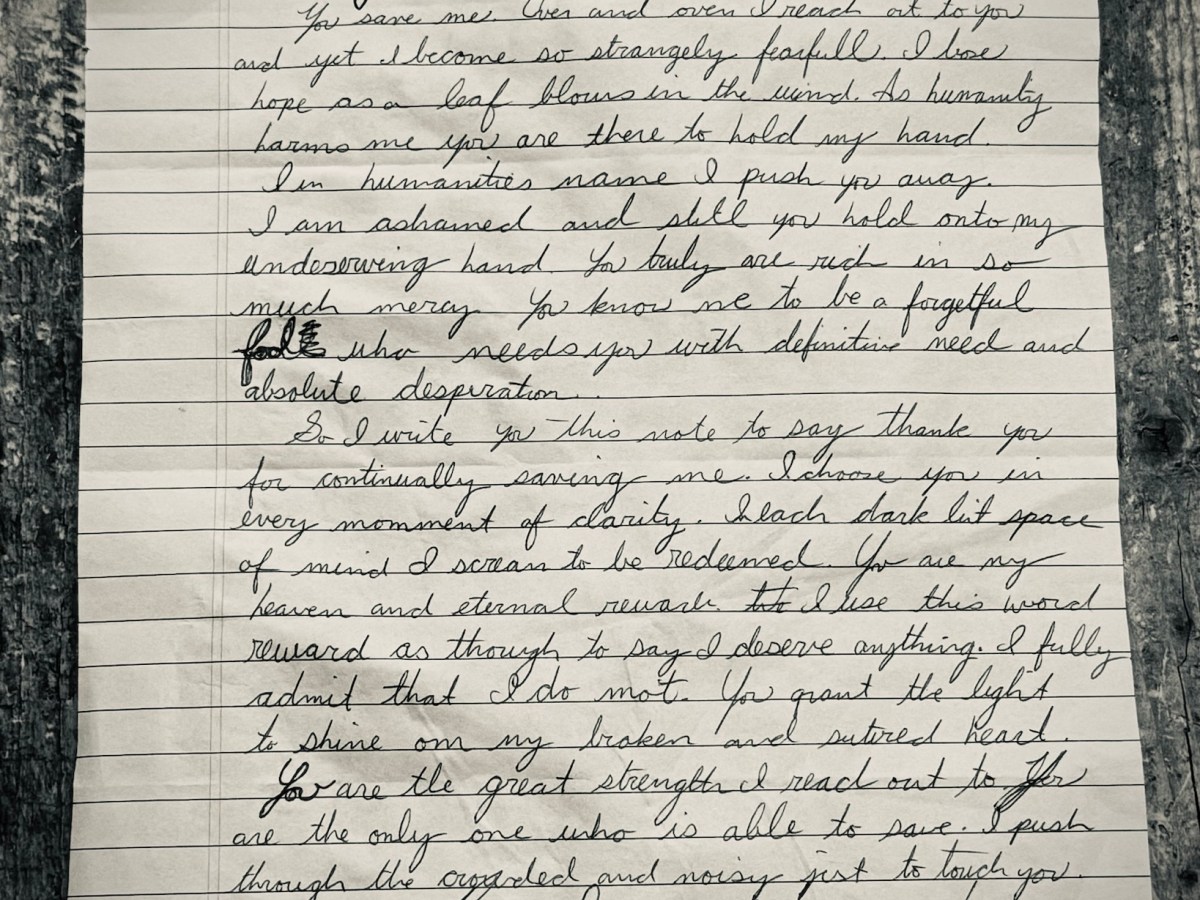 You save me. Over and over I reach out to you
and yet I become so strangely fearfull. I lose
hope as a leaf blows in the wind. As humanity
harms me you are there to hold my hand.
I in humanities name I push you away.
I am ashamed and still you hold onto my
undeserving hand. You truly are rich in so
much mercy. You know me to be a forgetful
fool who needs you with definitive need and
absolute desperation.
So I write you this note to say thank you
for continually saving me. I choose you in
every momment of clarity. In each dark lit space
of mind I scream to be redeemed. You are my
heaven and eternal reward. I use this word
reward as though to say I deserve anything. I fully
admit that I do not. You grant the light
to shine on my broken and sutured heart.
You are the great strength I reach out to You
are the only one who is able to save. I push
through the crowded and noisy just to touch you.